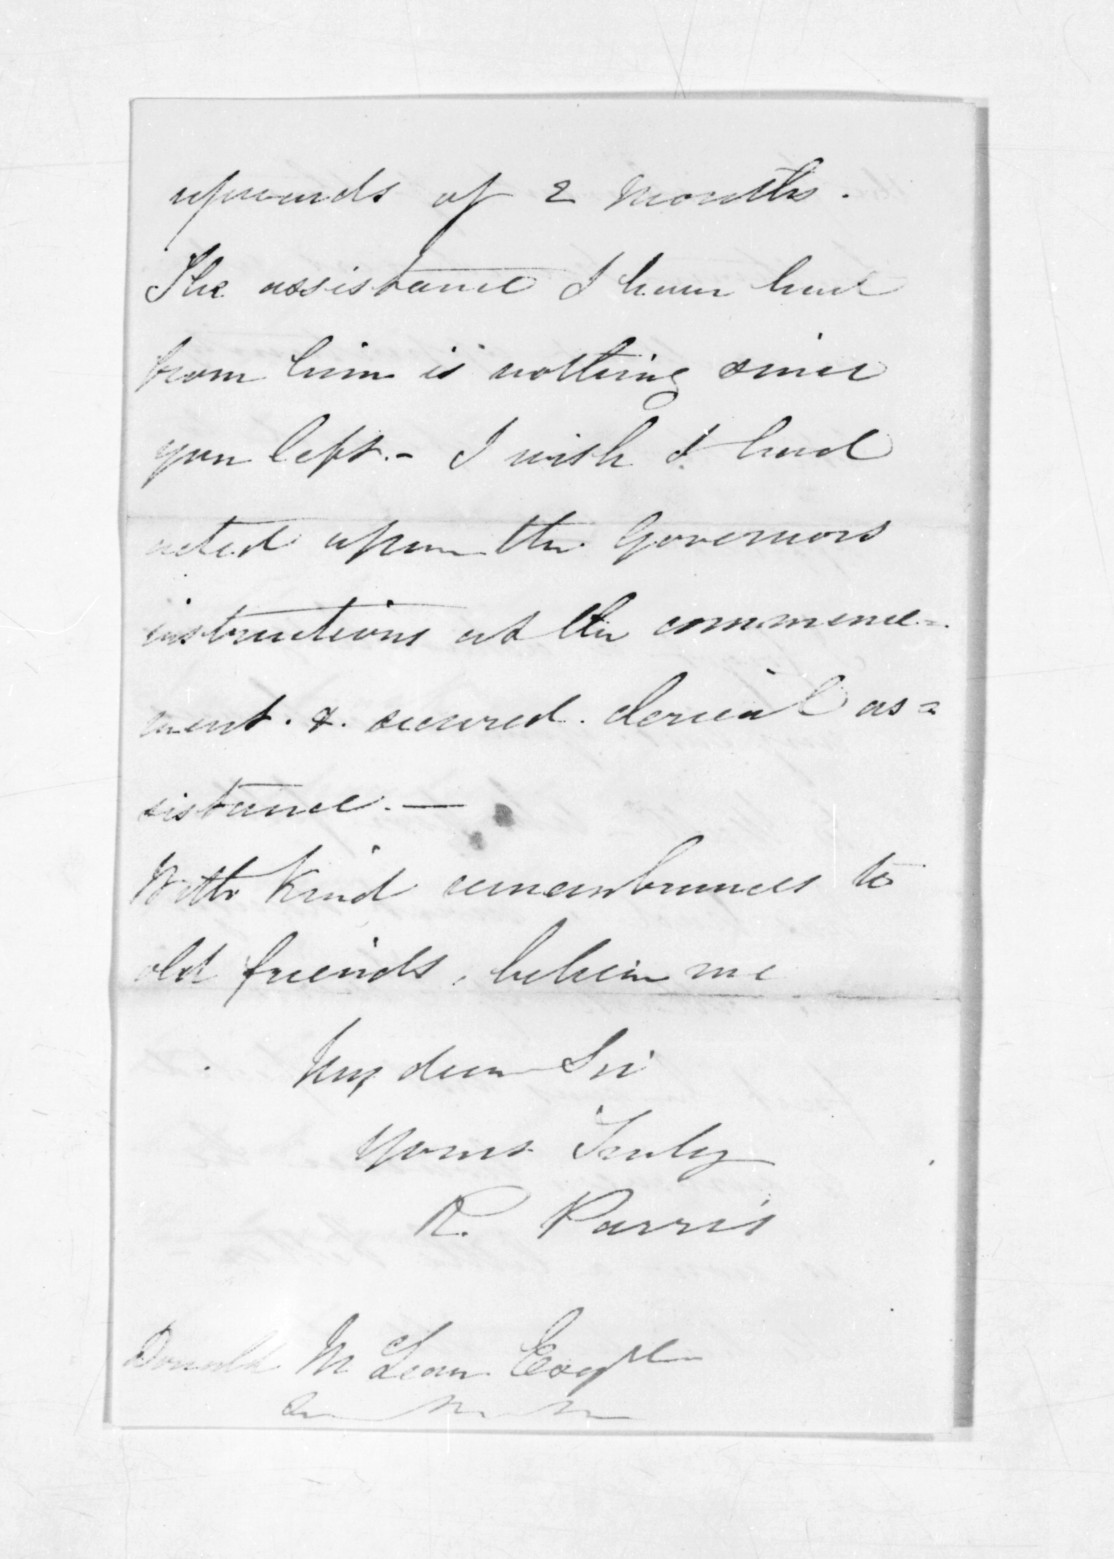 upwards of 2 Months.
The assistance I have had
from him is nothing since
you left. - I wish I had
acted upon the Governors
instructions at the commence-
ment. & secured. clerical as=
sistance. —
With Kind remembrances to
old friends, believe me
My dear Sir
Yours Truly
R. Parris
Donald McLean Esqre